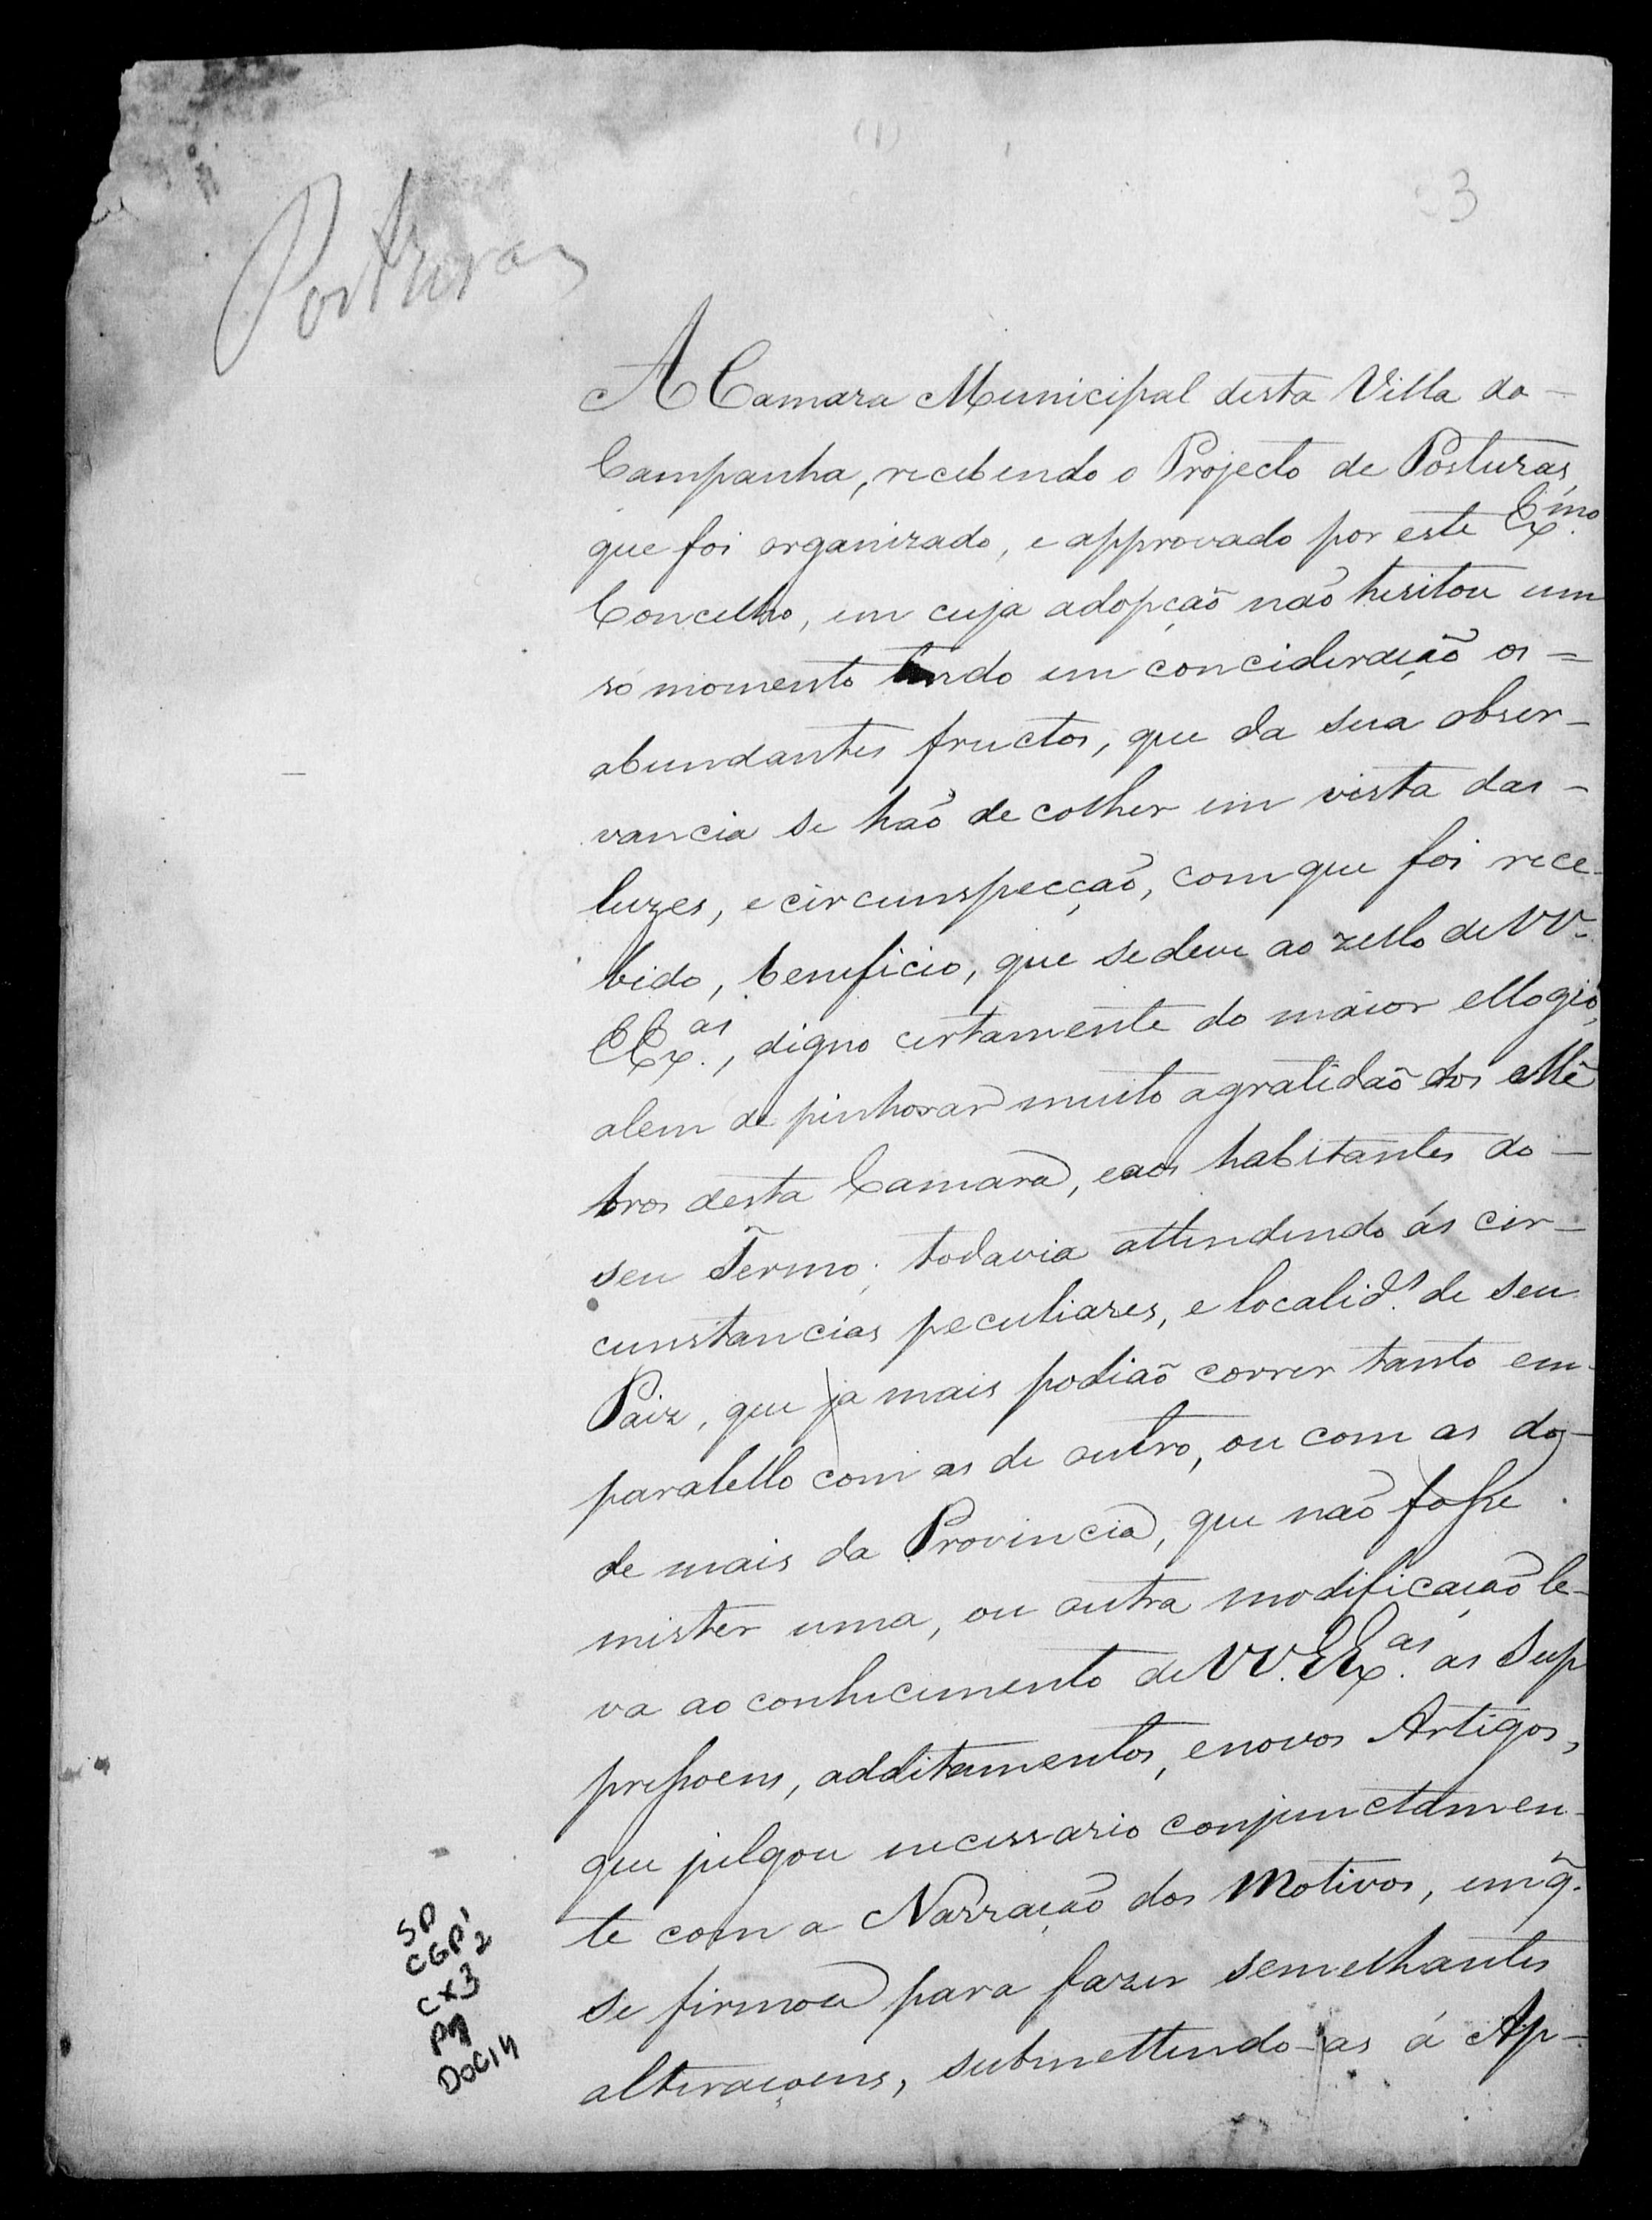 (1)
3
Posturas
A Camara Municipal desta Villa da -
Campanha, recebendo o Projecto de Posturas,
que foi organizado, e approvado por este Ex.mo
Concelho, em cuja adopção não hesitou um
só momento tendo em concideração os =
abundantes fructos, que da sua obser-
vancia se hão de colher em vista das -
luzes, e circunspecção, com que foi rece-
bido, beneficio, que se deve ao zello de VV.
EEx.as, digno certamente do maior ellogio,
alem de pinhorar muito a gratidão dos Mẽ
bros desta Camara, e aos habitantes do -
seu Termo; todavia attendendo ás cir-
cunstancias peculiares, e localid.s de seu
Paiz, que ja mais podião correr tanto em -
paralello com as de outro, ou com as do -
de mais da Provincia, que não fosse
mister uma, ou outra modificação le-
va ao conhecimento de VV. EEx.as as Sup
pressoens, additamentos, e novos Artigos,
que julgou necessario conjunctamen-
te com a Narração dos Motivos, em q̃.
se firmou para fazer semelhantes
alteraçoens, submettendo-as á Ap-
SP
CGP1
CX32
DOC14